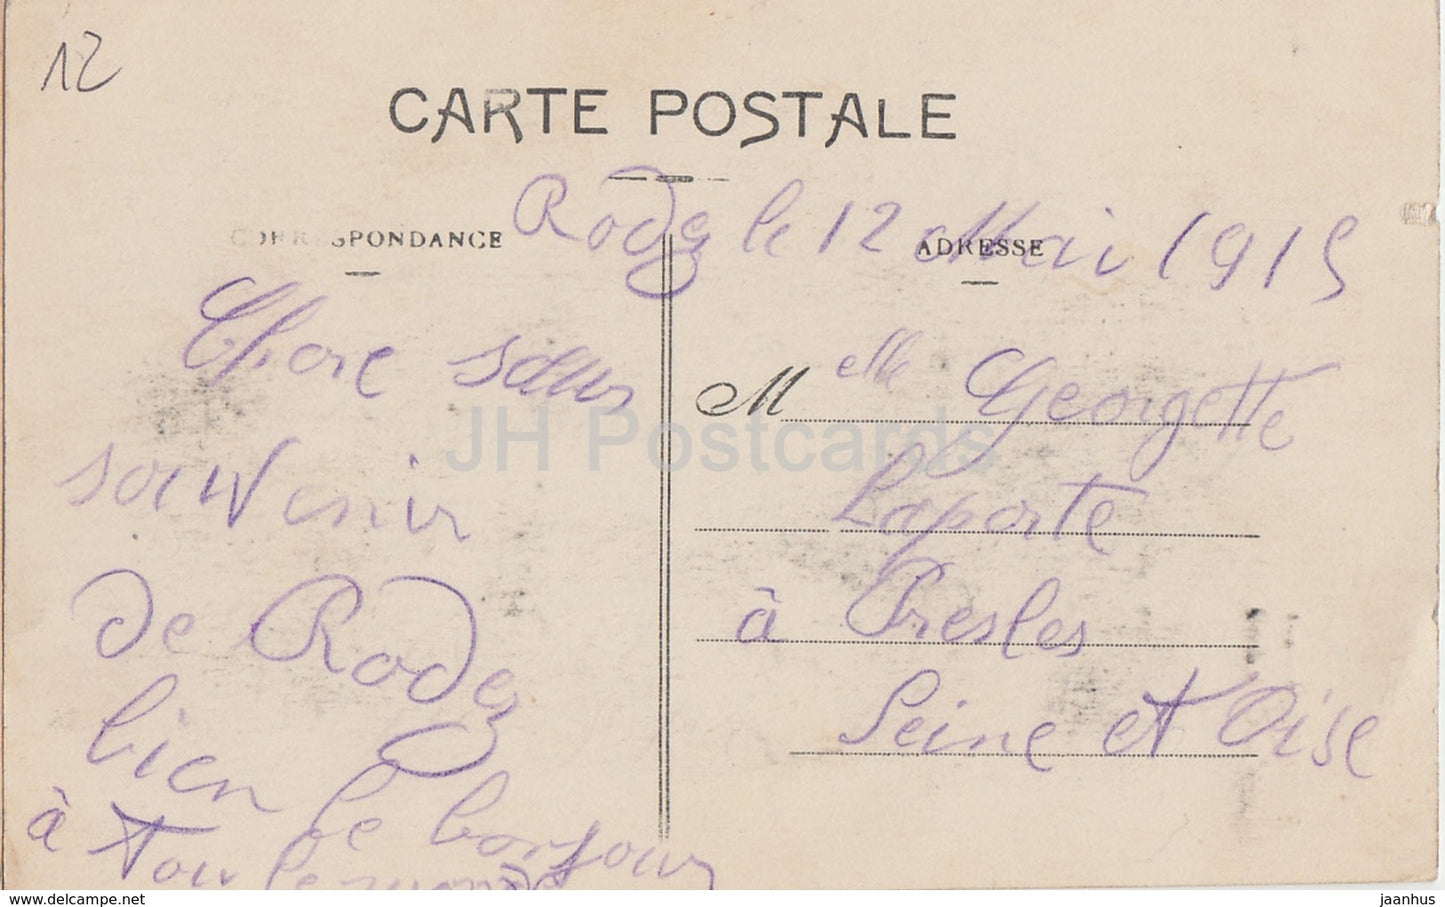 12
CARTE POSTALE
Rodez le 12 Mai 1915
CORRESPONDANCE
ADRESSE
Chere sœur
souvenir
de Rodez
bien le bonjour
à tou le monde
Melle Georgette
Laporte
à Presles
Seine et Oise
JH Postcards
www.delcampe.net
jaanhus